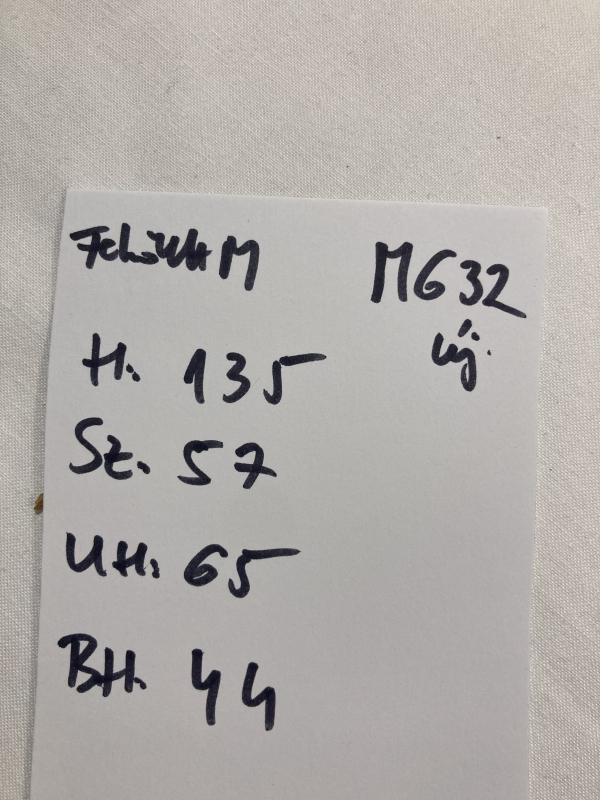 Felnőtt M
MG32
új.
H. 135
Sz. 57
UH. 65
BH. 44